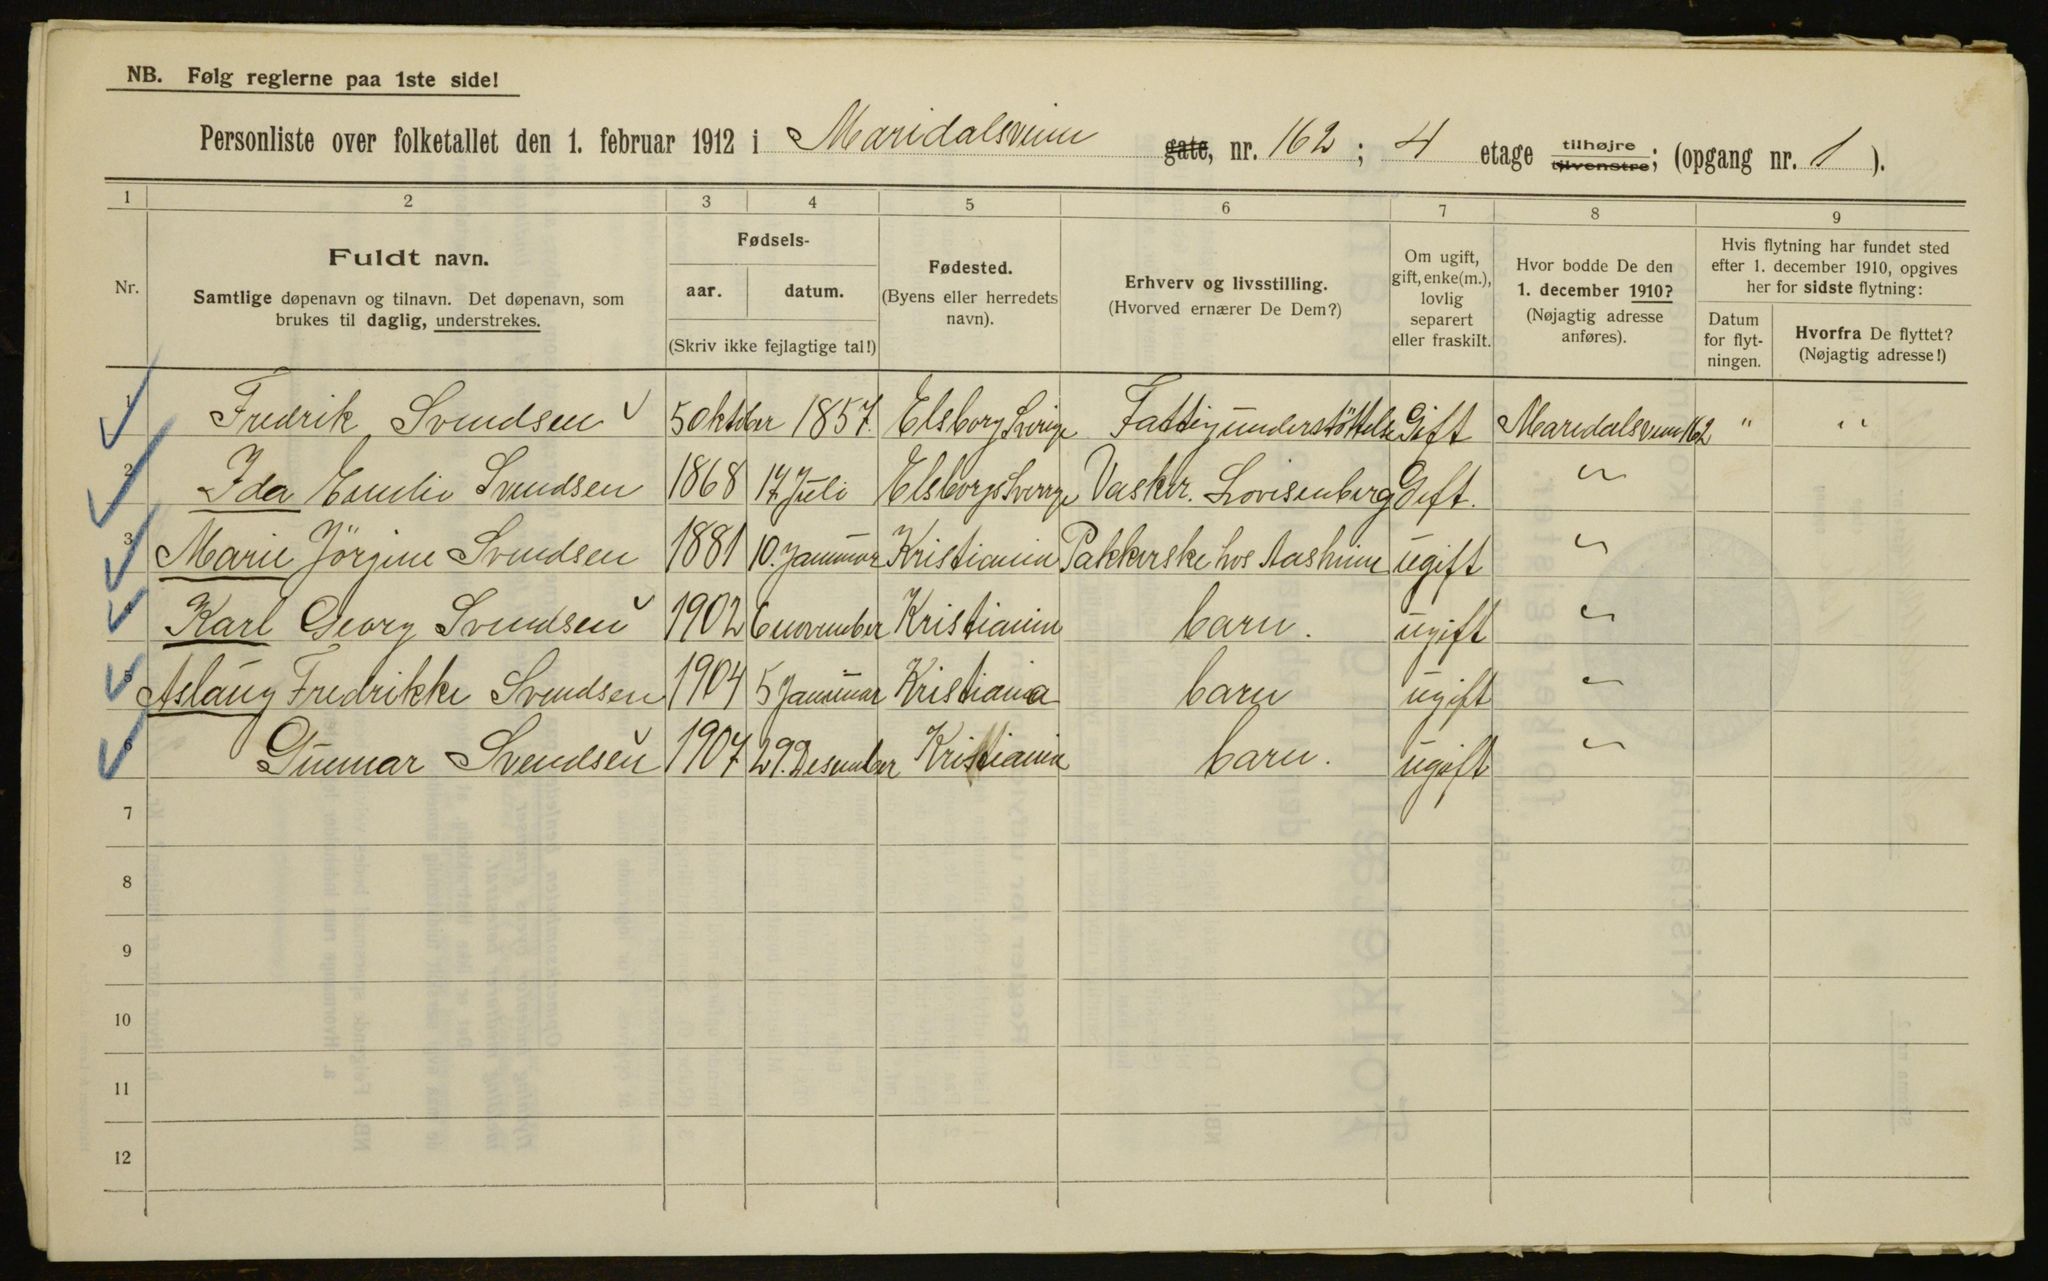 NB. Følg reglerne paa 1ste side!
Personliste over folketallet den 1. februar 1912 i Maridalsveien gate, nr. 162 ; 4 etage tilhøjre tilvenstre; (opgang nr. 1 ).
1 2 3 4 5 6 7 8 9
Nr.
Fuldt navn.
Samtlige døpenavn og tilnavn. Det døpenavn, som
brukes til daglig, understrekes.
Fødsels-
aar. datum.
(Skriv ikke fejlagtige tal!)
Fødested.
(Byens eller herredets
navn).
Erhverv og livsstilling.
(Hvorved ernærer De Dem?)
Om ugift,
gift, enke(m.),
lovlig
separert
eller fraskilt.
Hvor bodde De den
1. december 1910?
(Nøjagtig adresse
anføres).
Hvis flytning har fundet sted
efter 1. december 1910, opgives
her for sidste flytning:
Datum
for flyt-
ningen.
Hvorfra De flyttet?
(Nøjagtig adresse!)
1 Fredrik Svendsen 5 oktober 1857. Elsborg Sverige Fattigunderstöttelse Gift Maridalsveien 162 " "
2 Ida Emelie Svendsen 1868 17 Juli Elsborgs Sverrge Vasker. Lovisenberg Geft. "
3 Marie Jörgine Svendsen 1881 10. Januar Kristiania Pakkerske hos ugift "
4 Karl Georg Svendsen 1902 6 november Kristiania barn. ugift "
5 Aslaug Fredrikke Svendsen 1904 5 Januar Kristiania barn ugift "
6 Gunnar Svendsen 1907 29. Desember Kristiania barn. ugift "
7
8
9
10
11
12